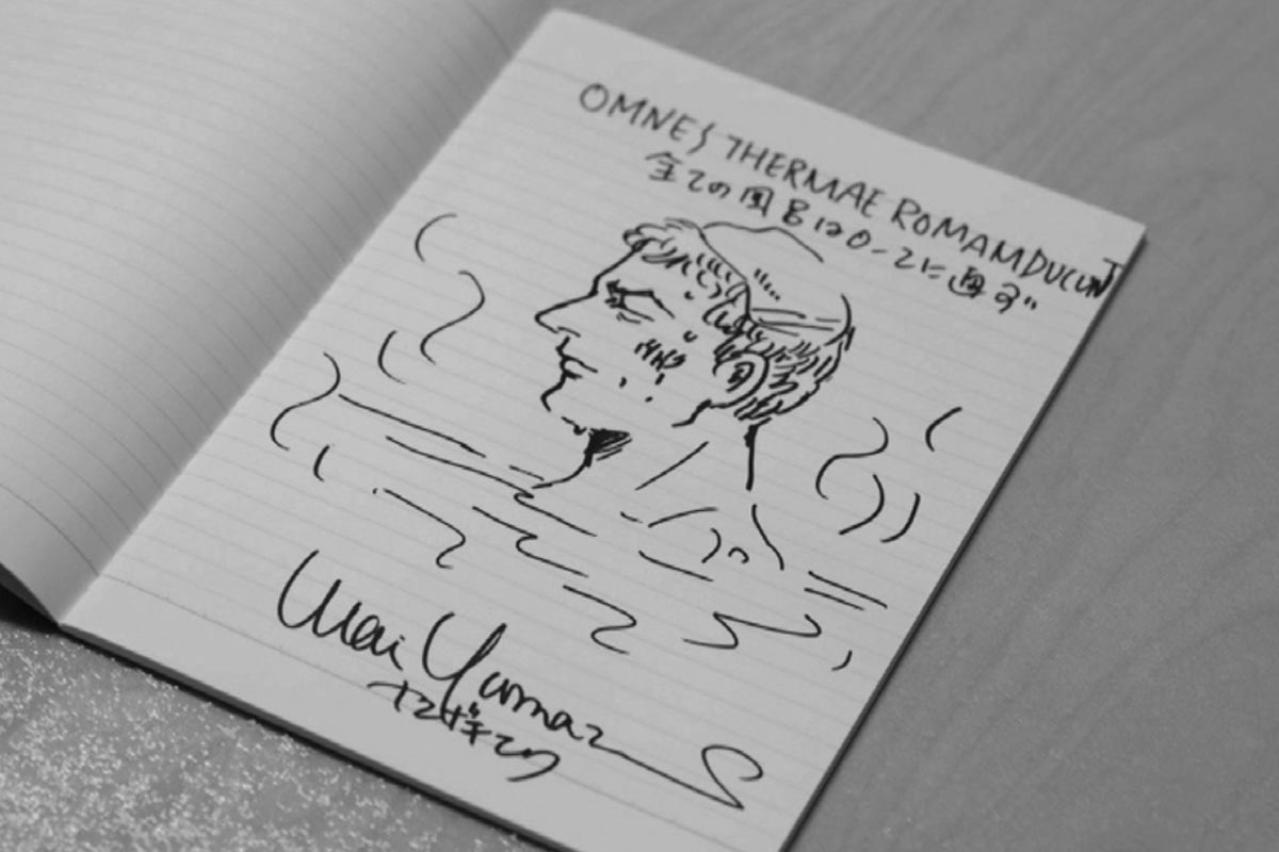 OMNES THERMAE ROMAM DUCUNT
全ての風呂はローマに通ず
Mari Yamaz
ヤマザキマリ